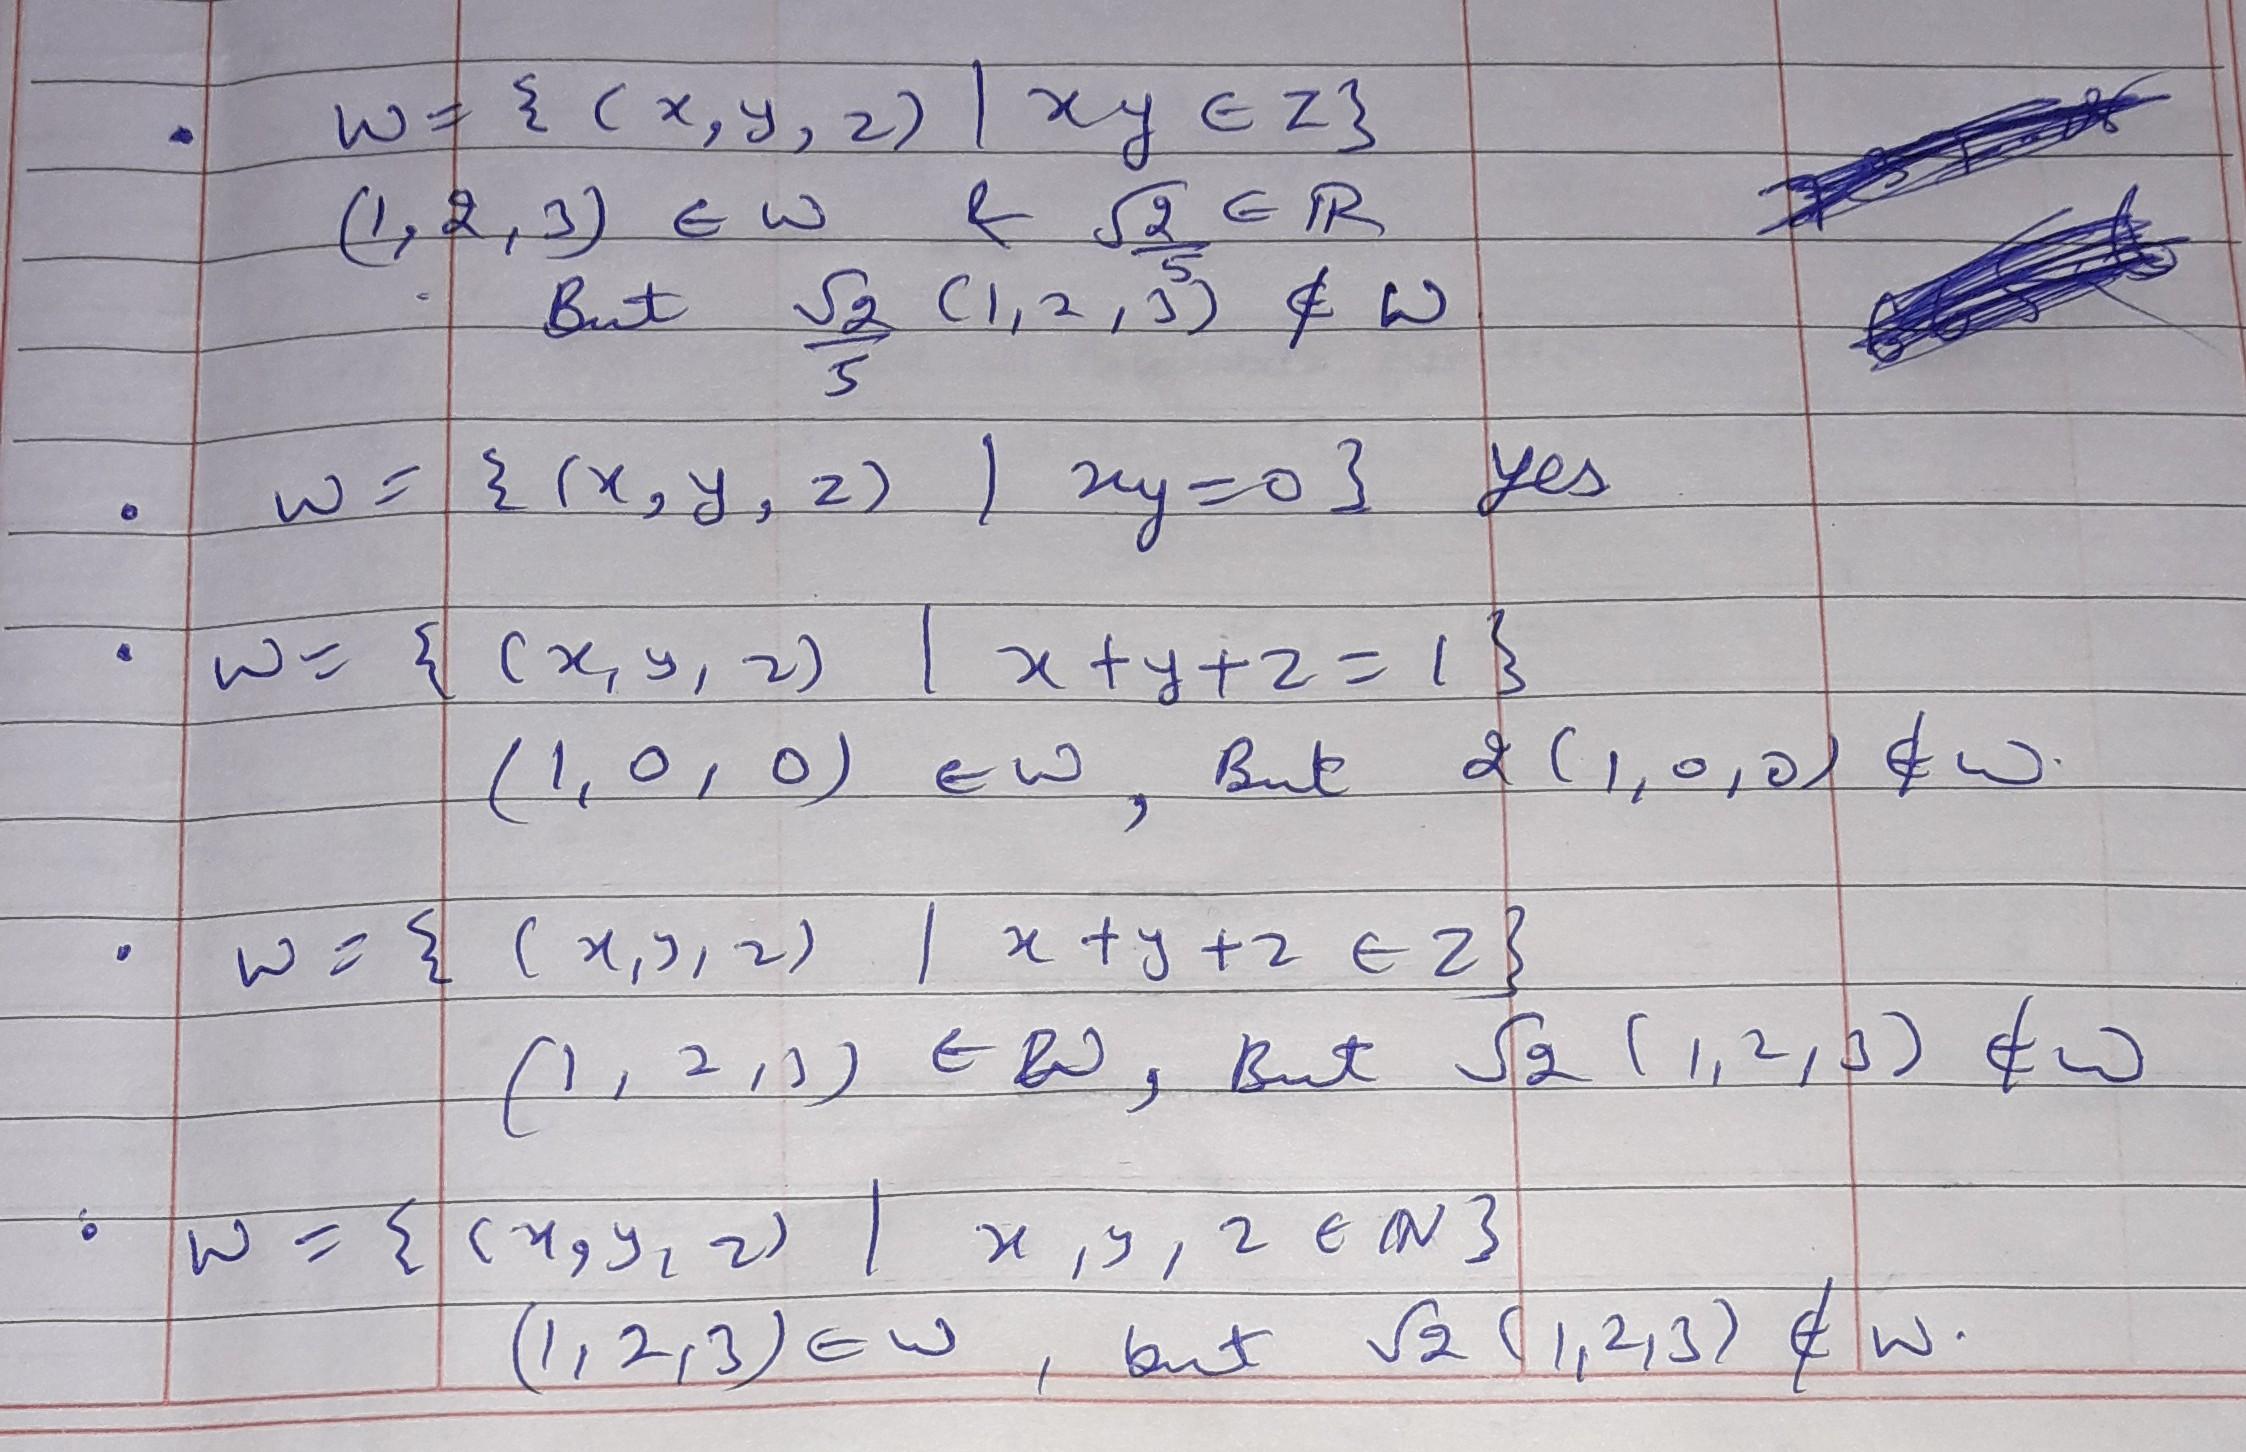 • W = { (x, y, z) | xy ∈ Z}
(1, 2, 3) ∈ W & √2/5 ∈ ℝ
But √2/5 (1, 2, 3) ∉ W
• W = { (x, y, z) | xy = 0 } yes
• W = { (x, y, z) | x + y + z = 1 }
(1, 0, 0) ∈ W, But 2 (1, 0, 0) ∉ W.
• W = { (x, y, z) | x + y + z ∈ Z}
(1, 2, 3) ∈ W, But √2 (1, 2, 3) ∉ W
• W = { (x, y, z) | x, y, z ∈ ℕ }
(1, 2, 3) ∈ W, but √2 (1, 2, 3) ∉ W.